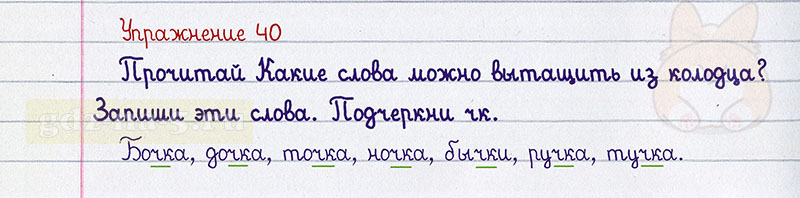 Упражнение 40
Прочитай Какие слова можно вытащить из колодца?
Запиши эти слова. Подчеркни чк.
Бочка, дочка, точка, ночка, бычки, ручка, тучка.